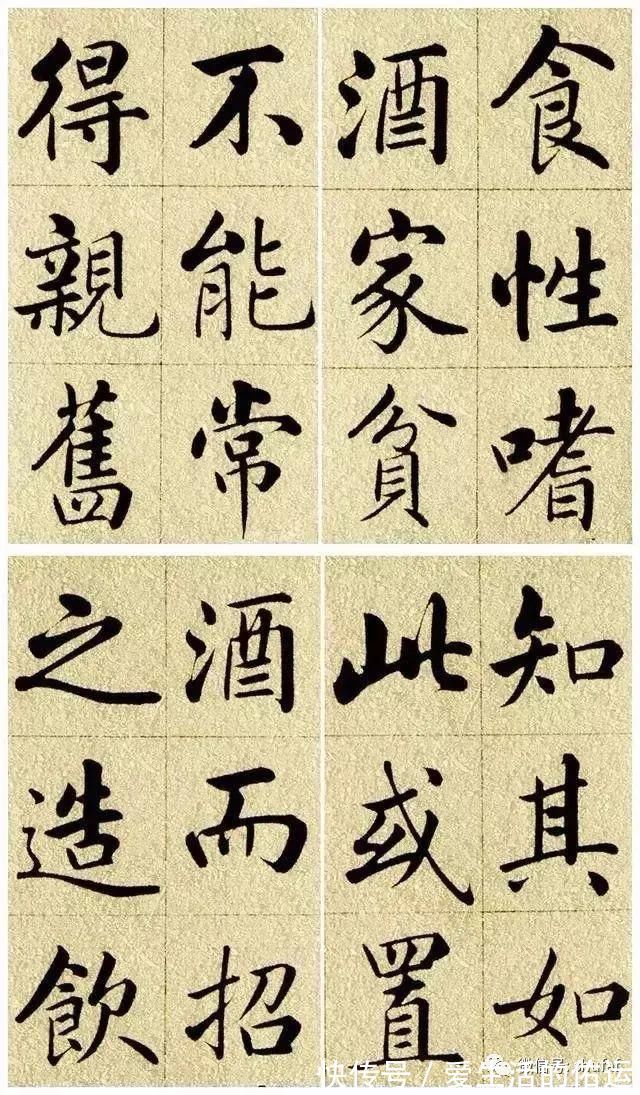 食性嗜
酒家貧
不能常
得親舊
知其如
此或置
酒而招
之造飲
快传号／爱生活的伯远
微信号